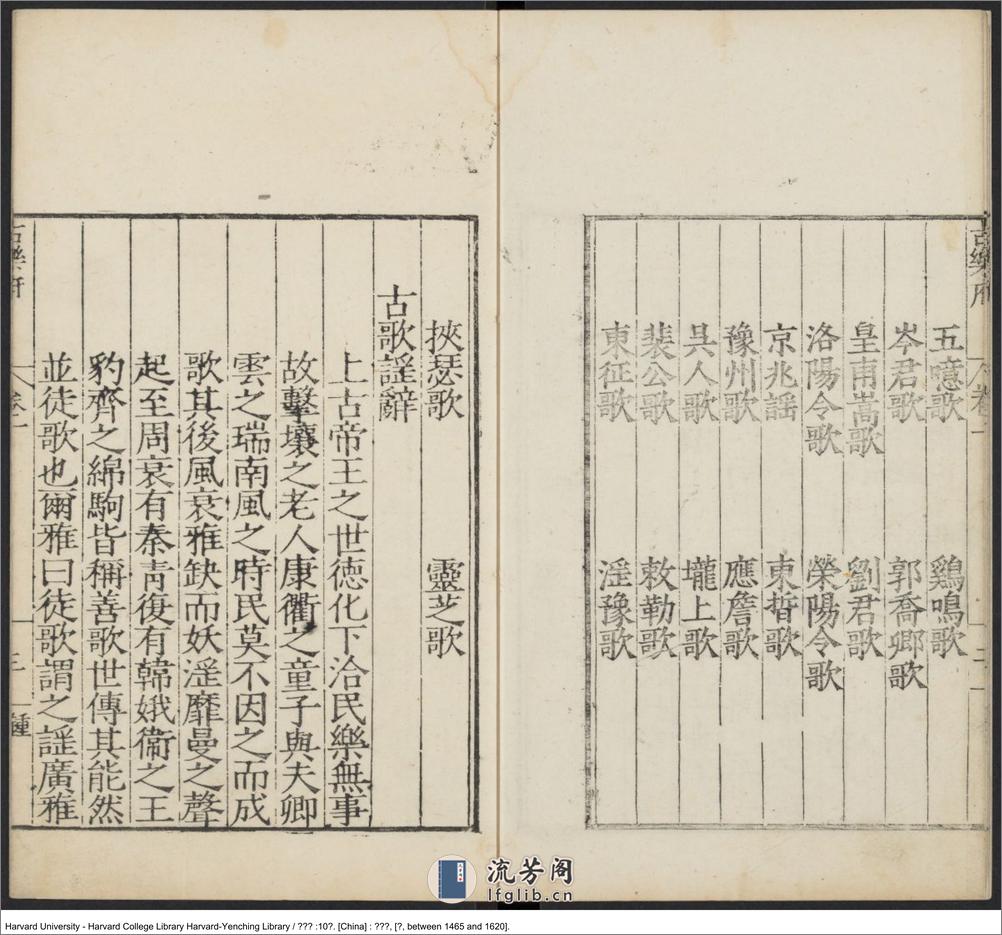 五噫歌　雞鳴歌
岑君歌　郭喬卿歌
皇甫嵩歌　劉君歌
洛陽令歌　滎陽令歌
京兆謡　東晢歌
豫州歌　應詹歌
吳人歌　壠上歌
裴公歌　敕勒歌
東征歌　淫豫歌
挾瑟歌　靈芝歌
古歌謡辭
上古帝王之世德化下洽民樂無事
故擊壤之老人康衢之童子與夫卿
雲之瑞南風之時民莫不因之而成
歌其後風衰雅缺而妖淫靡曼之聲
起至周衰有秦青復有韓娥衞之王
豹齊之綿駒皆稱善歌世傳其能然
並徒歌也爾雅曰徒歌謂之謡廣雅
古樂府
流芳阁
lfglib.cn
Harvard University - Harvard College Library Harvard-Yenching Library / ??? :10?. [China] : ???, [?, between 1465 and 1620].